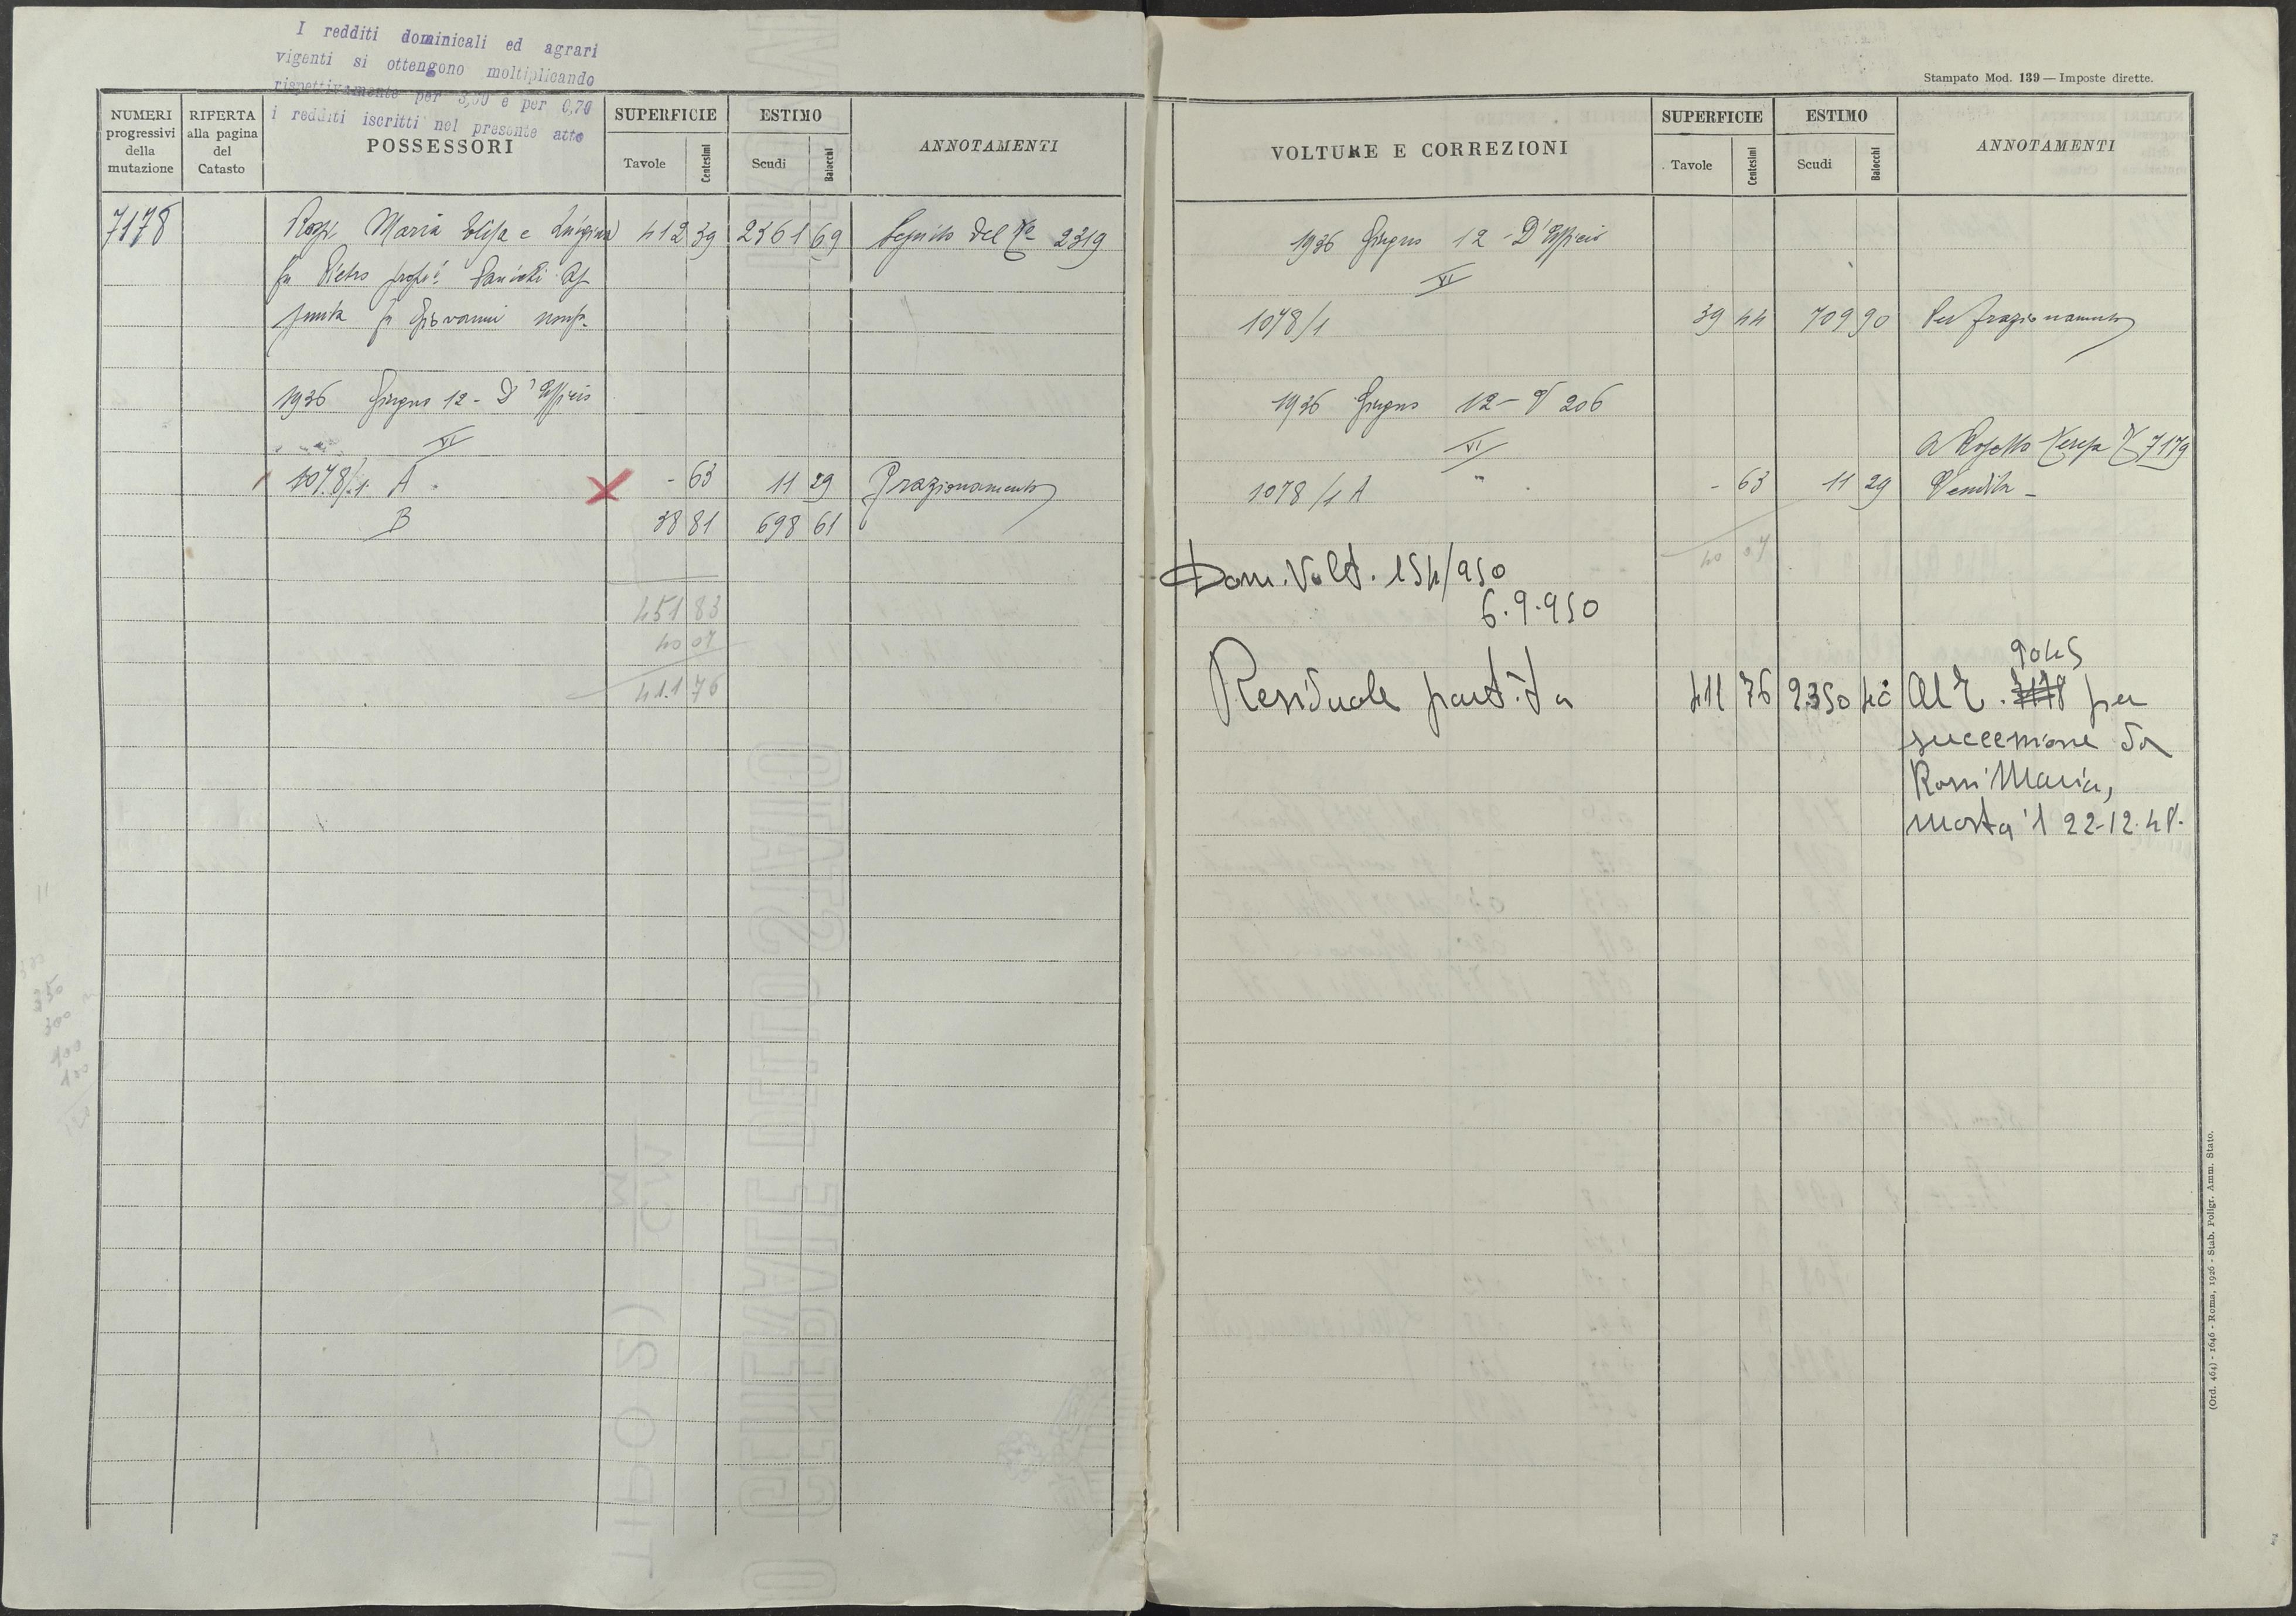 I redditi dominicali ed agrari
vigenti si ottengono moltiplicando
rispettivamente per 3,30 e per 0,70
i redditi iscritti nel presente atto
NUMERI progressivi della mutazione
RIFERTA alla pagina del Catasto
POSSESSORI
SUPERFICIE
Tavole
Centesimi
ESTIMO
Scudi
Baiocchi
ANNOTAMENTI
7178 Rossi Maria Elisa e Luigina 412 39 2361 69 Seguito del N 2319
fu Pietro
fu Giovanni
1936 Giugno 12 - D'Ufficio
VI
1078/1 A - 63 11 29 Frazionamento
B 38 81 698 61
451 83
40 07
411 76
Stampato Mod. 139 — Imposte dirette.
VOLTURE E CORREZIONI
SUPERFICIE
Tavole
Centesimi
ESTIMO
Scudi
Baiocchi
ANNOTAMENTI
1936 Giugno 12 - D'Ufficio
VI
1078/1 39 44 709 90 Per frazionamento
1936 Giugno 12 - V 206
VI
7179
1078/1 A " - 63 11 29 Vendita -
40 07
Dom. Volt. 154/950
6.9.950
9045
Residuale partita 411 76 2350 40 Al N. 7178 per
successione da
Rossi Maria,
morta il 22-12-48.
(Ord. 464) - 1646 - Roma, 1926 - Stab. Poligr. Amm. Stato.